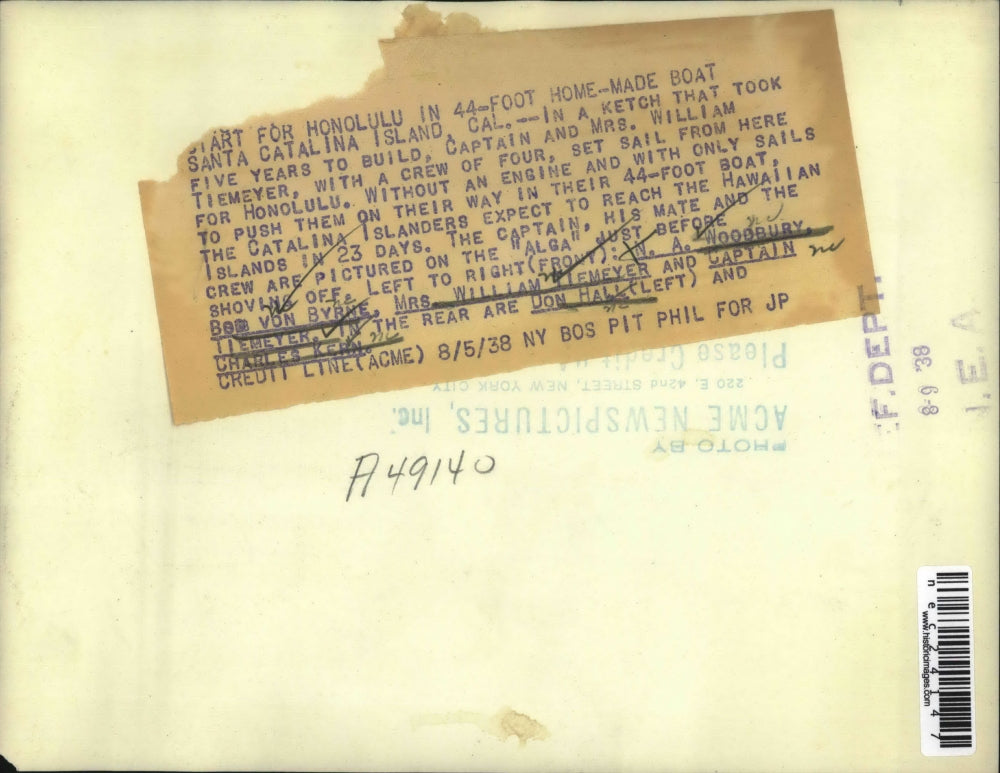 START FOR HONOLULU IN 44-FOOT HOME-MADE BOAT
SANTA CATALINA ISLAND, CAL.--IN A KETCH THAT TOOK
FIVE YEARS TO BUILD, CAPTAIN AND MRS. WILLIAM
TIEMEYER, WITH A CREW OF FOUR, SET SAIL FROM HERE
FOR HONOLULU. WITHOUT AN ENGINE AND WITH ONLY SAILS
TO PUSH THEM ON THEIR WAY IN THEIR 44-FOOT BOAT,
THE CATALINA ISLANDERS EXPECT TO REACH THE HAWAIIAN
ISLANDS IN 23 DAYS. THE CAPTAIN, HIS MATE AND THE
CREW ARE PICTURED ON THE "ALGA" JUST BEFORE
SHOVING OFF. LEFT TO RIGHT(FRONT): A. WOODBURY,
BOB VON BYRNE, MRS. WILLIAM TIEMEYER AND CAPTAIN
TIEMEYER, IN THE REAR ARE DON HALL(LEFT) AND
CHARLES KERN.
CREDIT LINE(ACME) 8/5/38 NY BOS PIT PHIL FOR JP
Please Credit
220 E. 42nd STREET, NEW YORK CITY
ACME NEWSPICTURES, Inc.
PHOTO BY
A49140
F. DEPT.
8-9 38
E A
nec24147
www.historicimages.com